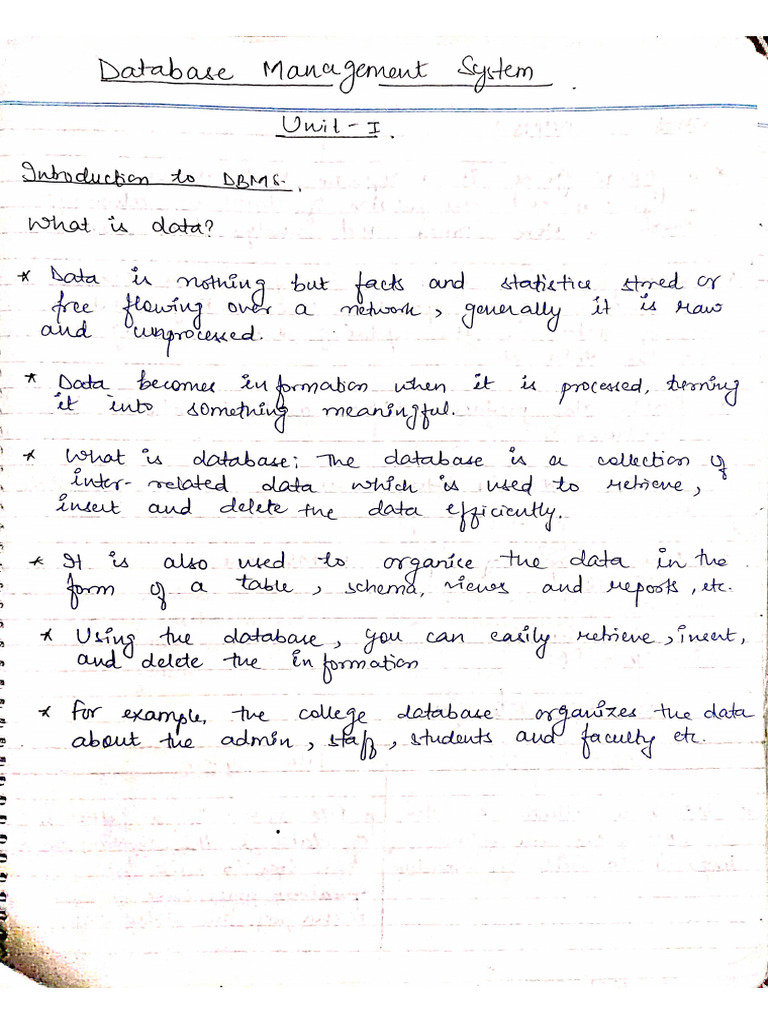 Database Management System.
Unit-I.
Introduction to DBMS.
What is data?
* Data is nothing but facts and statistics stored or
free flowing over a network, generally it is raw
and unprocessed.
* Data becomes information when it is processed, turning
it into something meaningful.
* What is database: The database is a collection of
inter-related data which is used to retrieve,
insert and delete the data efficiently.
* It is also used to organice the data in the
form of a table, schema, views and reports, etc.
* Using the database, you can easily retrieve, insert,
and delete the information
* For example, the college database organizes the data
about the admin, staff, students and faculty etc.